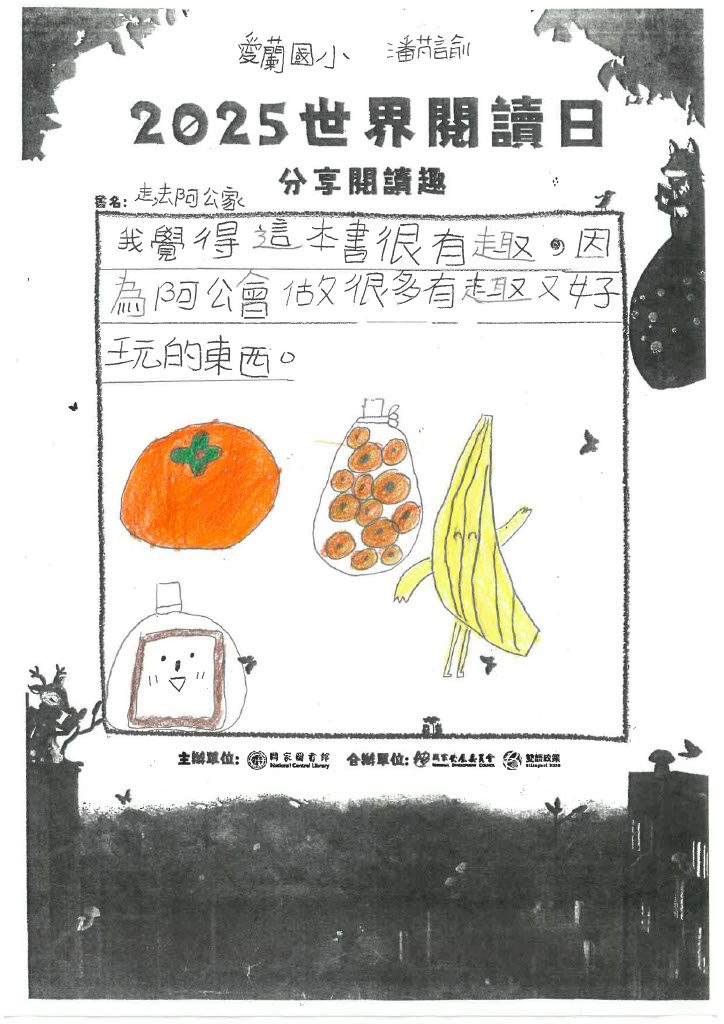 愛蘭國小 潘芮諭
2025世界閱讀日
分享閱讀趣
書名: 走去阿公家
我覺得這本書很有趣,因
為阿公會做很多有趣又好
玩的東西。
主辦單位: 國家圖書館 National Central Library 合辦單位: 國家發展委員會 NATIONAL DEVELOPMENT COUNCIL 雙語政策 Bilingual 2030